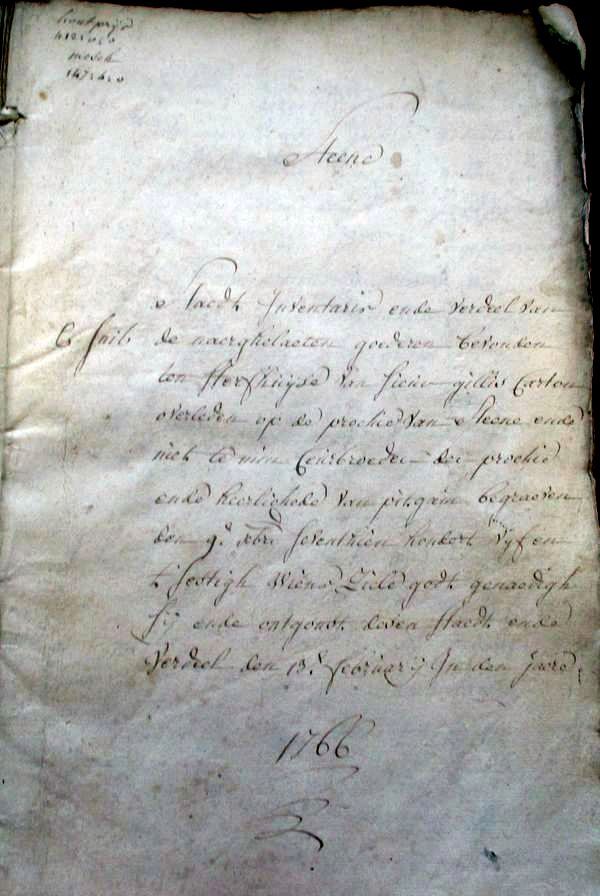 houtprijs
412:0:0
mesch
147:6:0
Steene
Staedt Inventaris ende verdeel van
de naerghelaeten goederen bevonden
ten sterfhuyse van sieur gillis Carton
overleden op de prochie van Steene ende
niet te min Ceurbroeder der prochie
ende heerlichede van pitgam begraeven
den 9.e xbre seventhien hondert vyf en
t' sestigh wiens Ziele godt genaedigh
sij ende ontgonst desen staedt ende
verdeel den 13.e februarij In den jaere
1766